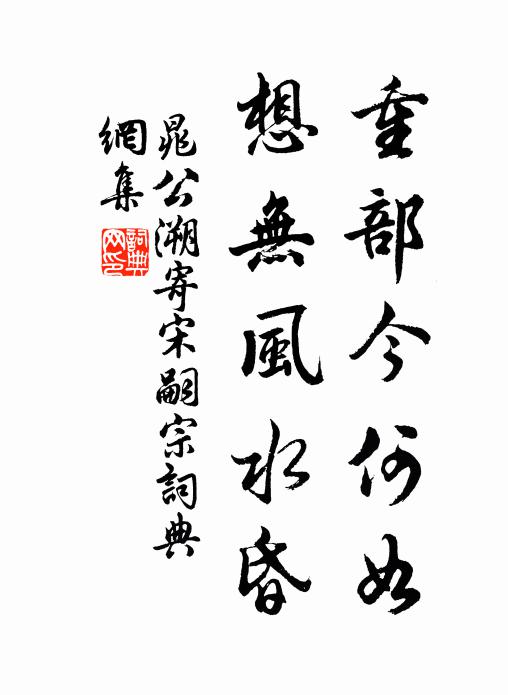 重部今何如
想無風水昏
晁公溯寄宋嗣宗詞典
網集
詞典
网印